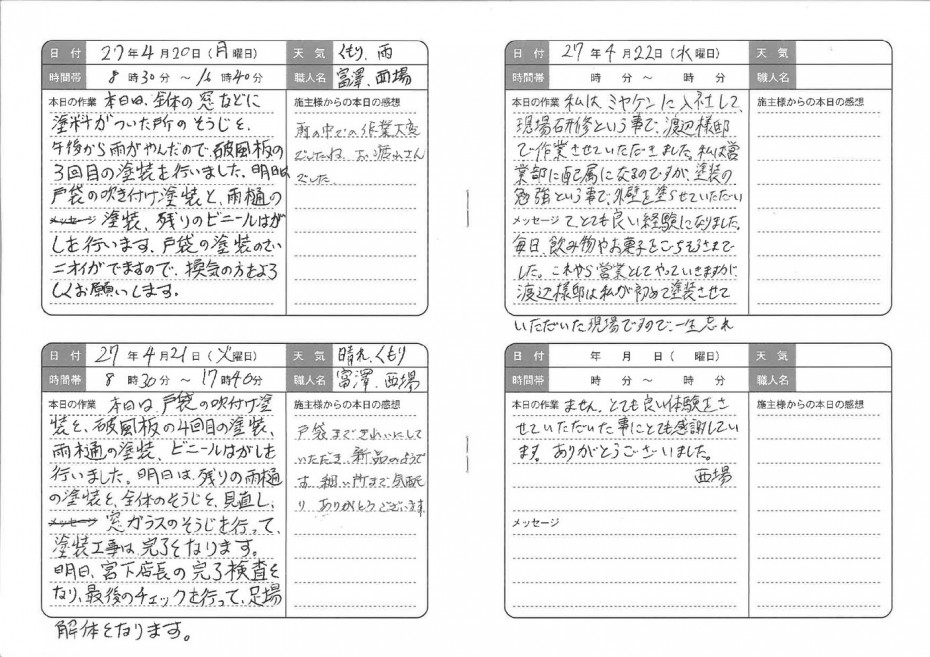 日付 27年4月20日(月曜日) 天気 くもり、雨
時間帯 8時30分～16時40分 職人名 富澤、西場
本日の作業 本日は、全体の窓などに
塗料がついた所のそうじと、
午後から雨がやんだので、破風板の
3回目の塗装を行いました。明日は
戸袋の吹き付け塗装と、雨樋の
メッセージ 塗装、残りのビニールはが
しを行います。戸袋の塗装のでい
ニオイがでますので、換気の方をよろ
しくお願いします。
施主様からの本日の感想
雨の中での作業大変
でしたね、お疲れさん
でした。
日付 27年4月21日(火曜日) 天気 晴れ、くもり
時間帯 8時30分～17時40分 職人名 富澤、西場
本日の作業 本日は、戸袋の吹付け塗
装と、破風板の4回目の塗装、
雨樋の塗装、ビニールはがしを
行いました。明日は、残りの雨樋
の塗装と、全体のそうじと、見直し、
メッセージ 窓ガラスのそうじを行って、
塗装工事は、完了となります。
明日、宮下店長の完了検査と
なり、最後のチェックを行って、足場
解体となります。
施主様からの本日の感想
戸袋まできれいにして
いただき、新品のようで
す、細い所まで気配
り ありがとうございます
日付 27年4月22日(水曜日) 天気
時間帯 時 分～ 時 分 職人名
本日の作業 私は、ミヤケンに入社して、
現場研修という事で、渡辺様邸
で作業させていただきました。私は営
業部に配属になるのですが、塗装の
勉強という事で、外壁を塗らせていただい
メッセージ て、とても良い経験になりました。
毎日、飲み物やお菓子をごちそうさまで
した。これから営業としてやっていきますが、
渡辺様邸は私が初めて塗装させて
いただいた現場ですので、一生忘れ
施主様からの本日の感想
日付 年 月 日( 曜日) 天気
時間帯 時 分～ 時 分 職人名
本日の作業 ません。とても良い体験をさ
せていただいた事にとても感謝してい
ます。ありがとうございました。
西場
メッセージ
施主様からの本日の感想